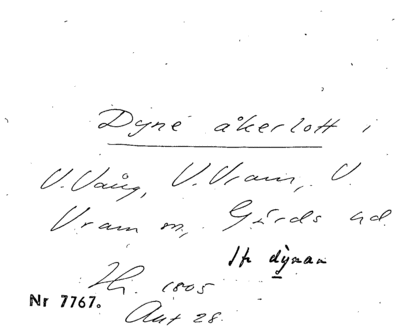 Dyné åkerlott i
V. Vång, V. Vram, V.
Vram sn, Gärds hd
st. dýnan
Hi. 1805
Nr 7767.
Akt 28.